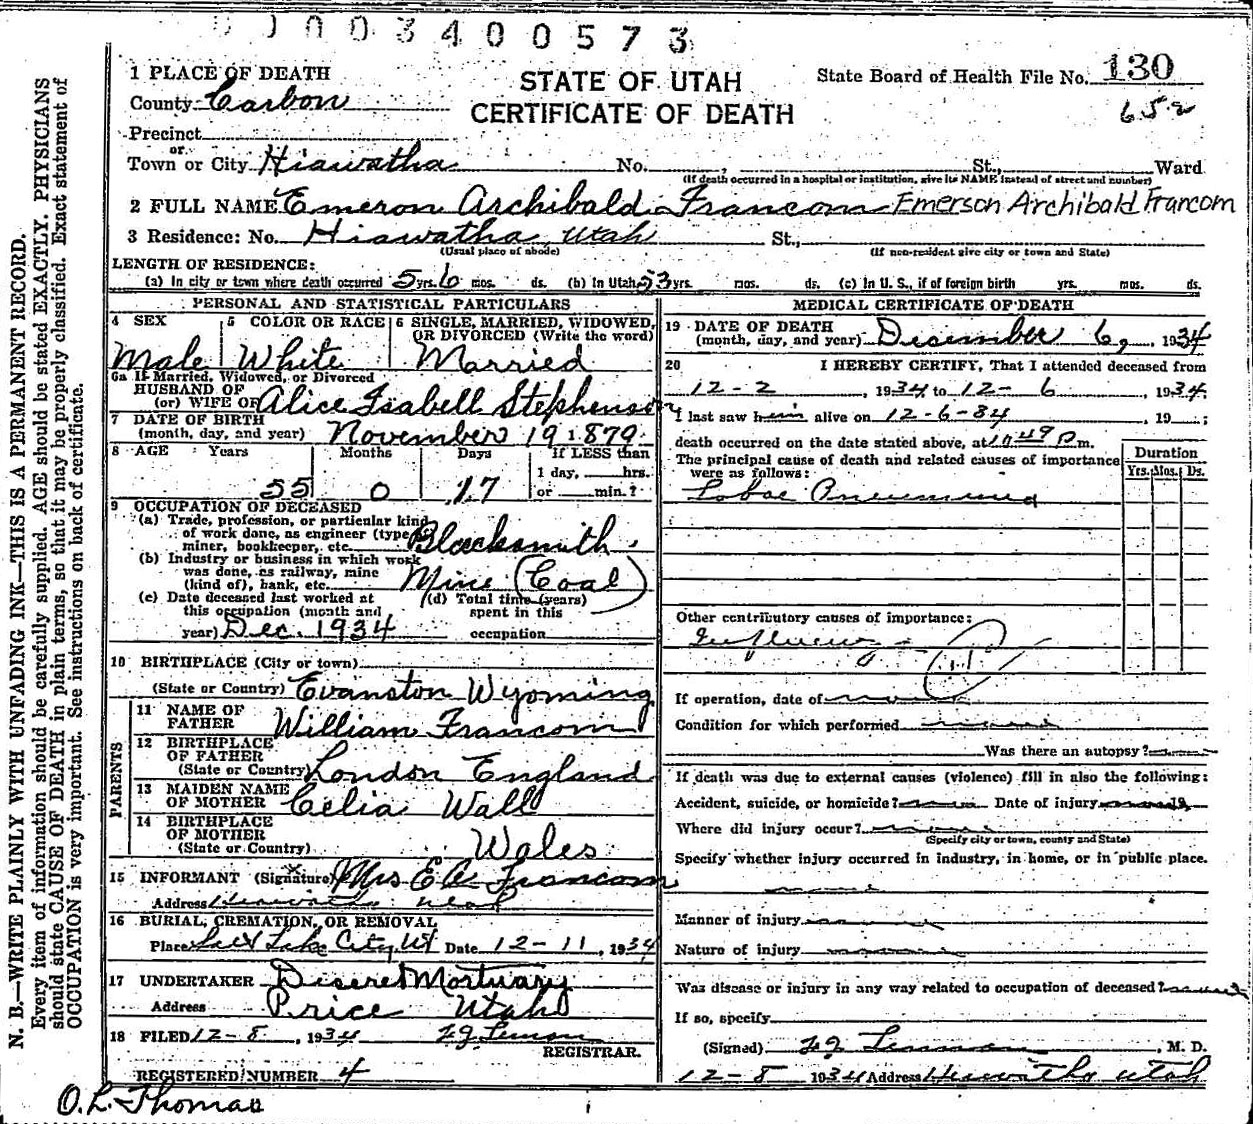 0 0 0 3 4 0 0 5 7 3
STATE OF UTAH
CERTIFICATE OF DEATH
State Board of Health File No. 130
652
1 PLACE OF DEATH
County Carbon
Precinct
or
Town or City Hiawatha No. St., Ward
(If death occurred in a hospital or institution, give its NAME instead of street and number)
2 FULL NAME Emeron Archibald Francom Emerson Archibald Francom
3 Residence: No. Hiawatha, Utah St.,
(Usual place of abode) (If non-resident give city or town and State)
LENGTH OF RESIDENCE:
(a) In city or town where death occurred 5 yrs. 6 mos. ds. (b) In Utah 53 yrs. mos. ds. (c) In U. S., if of foreign birth yrs. mos. ds.
PERSONAL AND STATISTICAL PARTICULARS
4 SEX 5 COLOR OR RACE 6 SINGLE, MARRIED, WIDOWED, OR DIVORCED (Write the word)
Male White Married
6a If Married, Widowed, or Divorced
HUSBAND OF
(or) WIFE OF Alice Isabell Stephenson
7 DATE OF BIRTH
(month, day, and year) November 19 1879
8 AGE Years Months Days If LESS than
1 day, hrs.
55 0 17 or min.?
9 OCCUPATION OF DECEASED
(a) Trade, profession, or particular kind
of work done, as engineer (type
miner, bookkeeper, etc. Blacksmith
(b) Industry or business in which work
was done, as railway, mine
(kind of), bank, etc. Mine (Coal)
(c) Date deceased last worked at (d) Total time (years)
this occupation (month and spent in this
year) Dec. 1934 occupation
10 BIRTHPLACE (City or town)
(State or Country) Evanston Wyoming
PARENTS
11 NAME OF
FATHER William Francom
12 BIRTHPLACE
OF FATHER
(State or Country) London England
13 MAIDEN NAME
OF MOTHER Celia Wall
14 BIRTHPLACE
OF MOTHER
(State or Country) Wales
15 INFORMANT (Signature) Mrs E A Francom
Address Hiawatha Utah
16 BURIAL, CREMATION, OR REMOVAL
Place Salt Lake City, Ut Date 12-11, 1934
17 UNDERTAKER Deseret Mortuary
Address Price Utah
18 FILED 12-8, 1934
REGISTRAR.
REGISTERED NUMBER 4
O. L. Thomas
MEDICAL CERTIFICATE OF DEATH
19 DATE OF DEATH
(month, day, and year) December 6, 1934
20 I HEREBY CERTIFY, That I attended deceased from
12-2, 1934 to 12-6, 1934.
I last saw him alive on 12-6-34, 19 ;
death occurred on the date stated above, at 10 49 P m.
The principal cause of death and related causes of importance
were as follows:
Duration
Yrs. Mos. Ds.
Lobar Pneumonia
Other contributory causes of importance:
Influenza
If operation, date of none
Condition for which performed none
Was there an autopsy?
If death was due to external causes (violence) fill in also the following:
Accident, suicide, or homicide? Date of injury 19
Where did injury occur?
(Specify city or town, county and State)
Specify whether injury occurred in industry, in home, or in public place.
none
Manner of injury
Nature of injury
Was disease or injury in any way related to occupation of deceased?
If so, specify
(Signed) , M. D.
12-8 1934 Address Hiawatha Utah
N. B.—WRITE PLAINLY WITH UNFADING INK—THIS IS A PERMANENT RECORD.
Every item of information should be carefully supplied. AGE should be stated EXACTLY. PHYSICIANS
should state CAUSE OF DEATH in plain terms, so that it may be properly classified. Exact statement of
OCCUPATION is very important. See instructions on back of certificate.